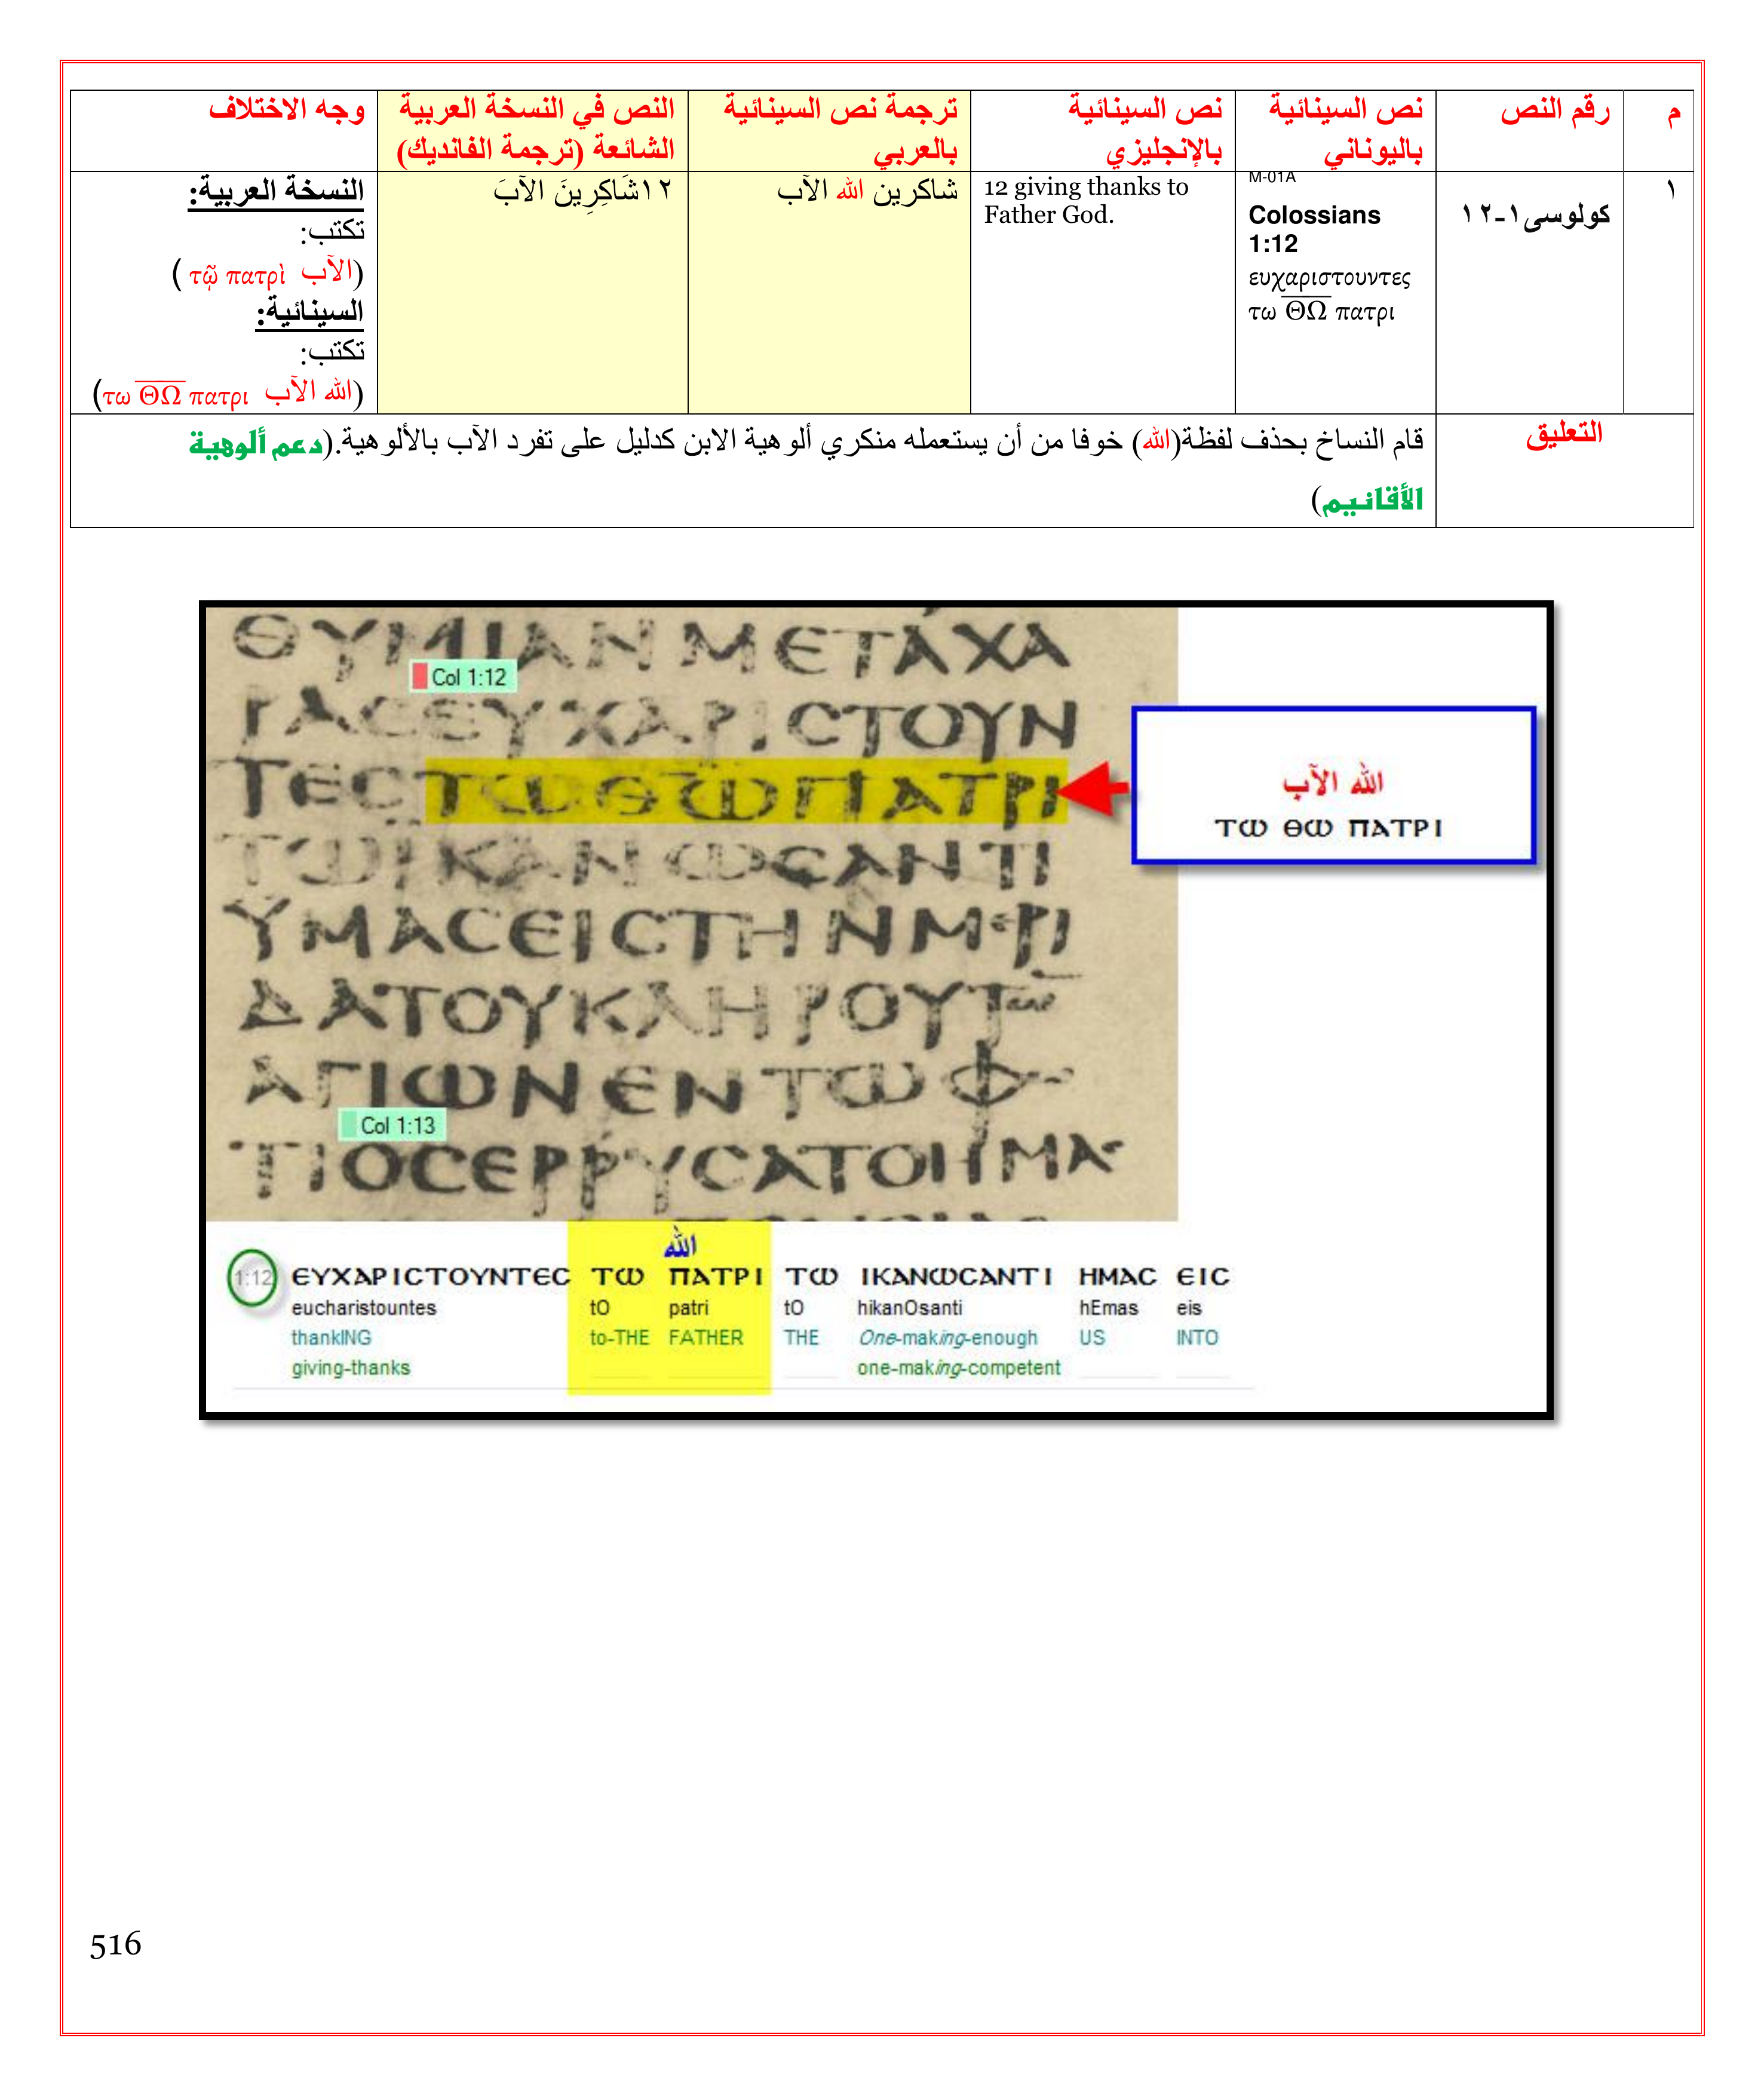 م
رقم النص
نص السينائية باليوناني
نص السينائية بالإنجليزي
ترجمة نص السينائية بالعربي
النص في النسخة العربية الشائعة (ترجمة الفانديك)
وجه الاختلاف
١
كولوسى١-١٢
M-01A
Colossians
1:12
ευχαριστουντες
τω Θ̅Ω̅ πατρι
12 giving thanks to
Father God.
شاكرين الله الآب
١٢شَاكِرِينَ الآبَ
النسخة العربية:
تكتب:
(الآب τῷ πατρὶ )
السينائية:
تكتب:
(الله الآب τω Θ̅Ω̅ πατρι)
التعليق
قام النساخ بحذف لفظة(الله) خوفا من أن يستعمله منكري ألوهية الابن كدليل على تفرد الآب بالألوهية.(دعم ألوهية
الأقانيم)
ΘΥΜΙΑΝΜΕΤΑΧΑ
Col 1:12
ΡΑϹΕΥΧΑΡΙϹΤΟΥΝ
ΤΕϹΤΩΘΩΠΑΤΡΙ
ΤΩΪΚΑΝΩϹΑΝΤΙ
ΥΜΑϹΕΙϹΤΗΝΜΕΡΙ
ΔΑΤΟΥΚΛΗΡΟΥΤΩ̅
ΑΓΙΩΝΕΝΤΩΦΩ
Col 1:13
ΤΙΟϹΕΡΡΥϹΑΤΟΗΜΑϹ
الله الآب
ΤΩ ΘΩ ΠΑΤΡΙ
الله
1:12 ΕΥΧΑΡΙϹΤΟΥΝΤΕϹ ΤΩ ΠΑΤΡΙ ΤΩ ΙΚΑΝΩϹΑΝΤΙ ΗΜΑϹ ΕΙϹ
eucharistountes tO patri tO hikanOsanti hEmas eis
thankING to-THE FATHER THE One-making-enough US INTO
giving-thanks one-making-competent
516